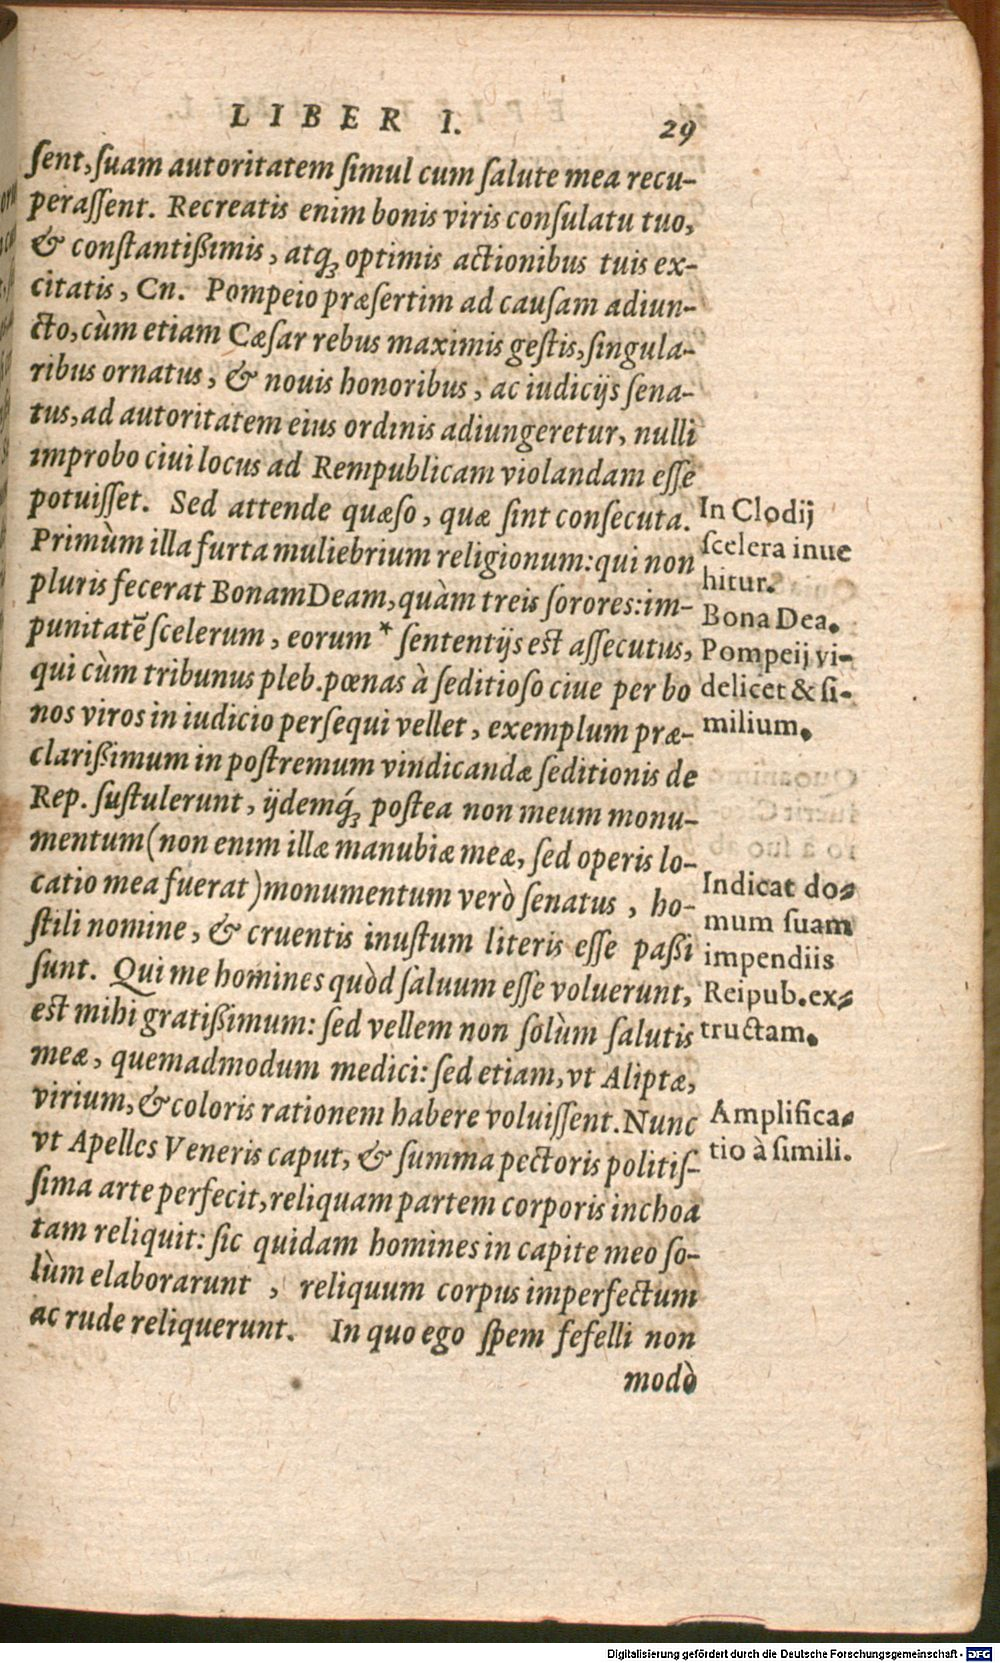 LIBER I. 29
ſent, ſuam autoritatem ſimul cum ſalute mea recu-
peraſſent. Recreatis enim bonis viris conſulatu tuo,
& conſtantißimis, atq; optimis actionibus tuis ex-
citatis, Cn. Pompeio præſertim ad cauſam adiun-
cto, cùm etiam Cæſar rebus maximis geſtis, ſingula-
ribus ornatus, & nouis honoribus, ac iudicijs ſena-
tus, ad autoritatem eius ordinis adiungeretur, nulli
improbo ciui locus ad Rempublicam violandam eſſe
potuiſſet. Sed attende quæſo, quæ ſint conſecuta.
Primùm illa furta muliebrium religionum: qui non
pluris fecerat Bonam Deam, quàm treis ſorores: im-
punitatē ſcelerum, eorum * ſententijs eſt aſſecutus,
qui cùm tribunus pleb. pœnas à ſeditioſo ciue per bo
nos viros in iudicio perſequi vellet, exemplum præ-
clarißimum in poſtremum vindicandæ ſeditionis de
Rep. ſuſtulerunt, ijdemq́; poſtea non meum monu-
mentum (non enim illæ manubiæ meæ, ſed operis lo-
catio mea fuerat) monumentum verò ſenatus, ho-
ſtili nomine, & cruentis inuſtum literis eſſe paßi
ſunt. Qui me homines quòd ſaluum eſſe voluerunt,
eſt mihi gratißimum: ſed vellem non ſolùm ſalutis
meæ, quemadmodum medici: ſed etiam, vt Aliptæ,
virium, & coloris rationem habere voluiſſent. Nunc
vt Apelles Veneris caput, & ſumma pectoris politiſ-
ſima arte perfecit, reliquam partem corporis inchoa
tam reliquit: ſic quidam homines in capite meo ſo-
lùm elaborarunt, reliquum corpus imperfectum
ac rude reliquerunt. In quo ego ſpem fefelli non
modò
In Clodij
ſcelera inue
hitur.
Bona Dea.
Pompeij vi-
delicet & ſi-
milium.
Indicat do-
mum ſuam
impendiis
Reipub. ex-
tructam.
Amplifica-
tio à ſimili.
Digitalisierung gefördert durch die Deutsche Forschungsgemeinschaft - DFG